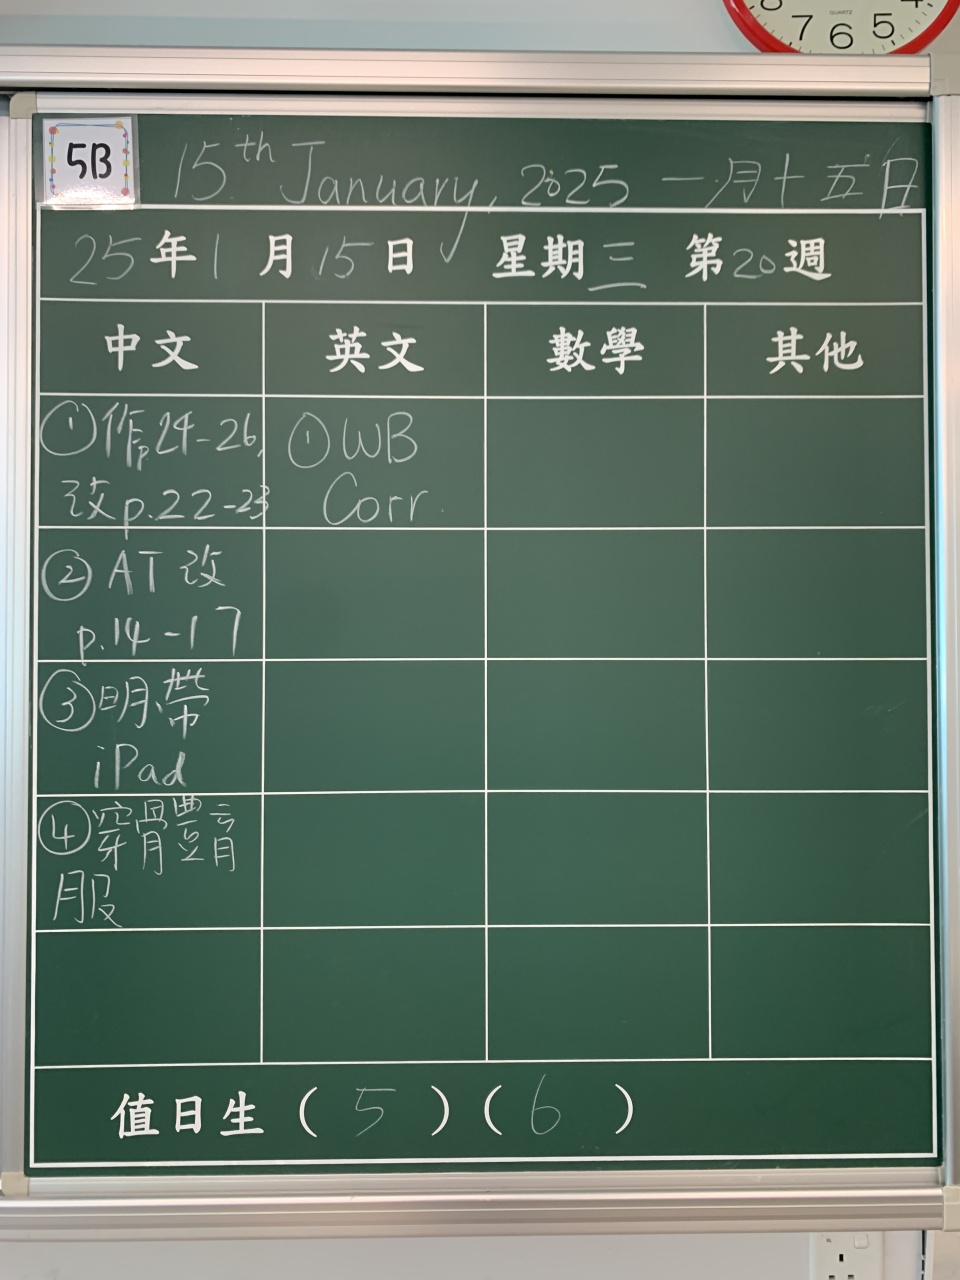 7 6 5
QUARTZ
5B
15th January, 2025 一月十五日
25年1月15日 星期三 第20週
中文 英文 數學 其他
①作p24-26,
改p.22-23
① WB
Corr.
② AT 改
p.14-17
③明帶
iPad
④穿體育
服
值日生 ( 5 ) ( 6 )